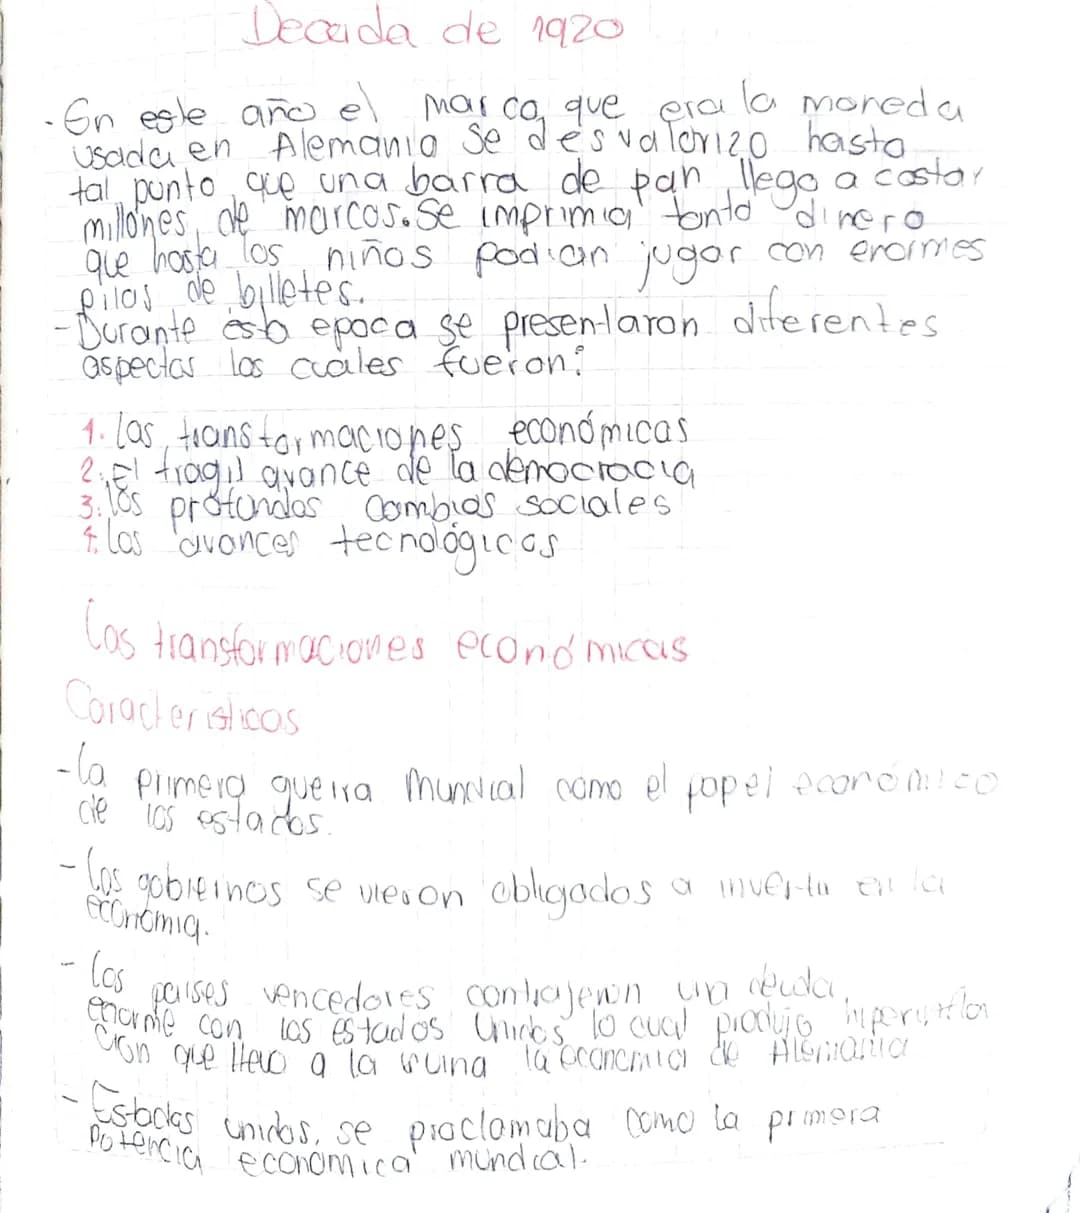 Decada de 1920
- En este año el marca, que era la moneda
usada en Alemania se desvalorizo hasta
tal punto que una barra de pan llego a costar
millones de marcos. Se imprimia tanto dinero
que hasta los niños podian jugar con enormes
pilas de billetes.
- Durante esta epoca se presentaron diferentes
aspectos los cuales fueron:
1. Las transformaciones económicas
2. El fragil avance de la democracia
3. los profundos cambios sociales
4. los avances tecnológicos
Las transformaciones económicas
Caracteristicas
- la primera guerra Mundial como el papel económico
de los estados.
- Los gobiernos se vieron obligados a invertir en la
economia.
- Los paises vencedores contrajeron una deuda
enorme con los estados Unidos, lo cual produjo hiperinfla
cion que llevo a la ruina la economia de Alemania
- Estados unidos, se proclamaba como la primera
potencia economica mundial.